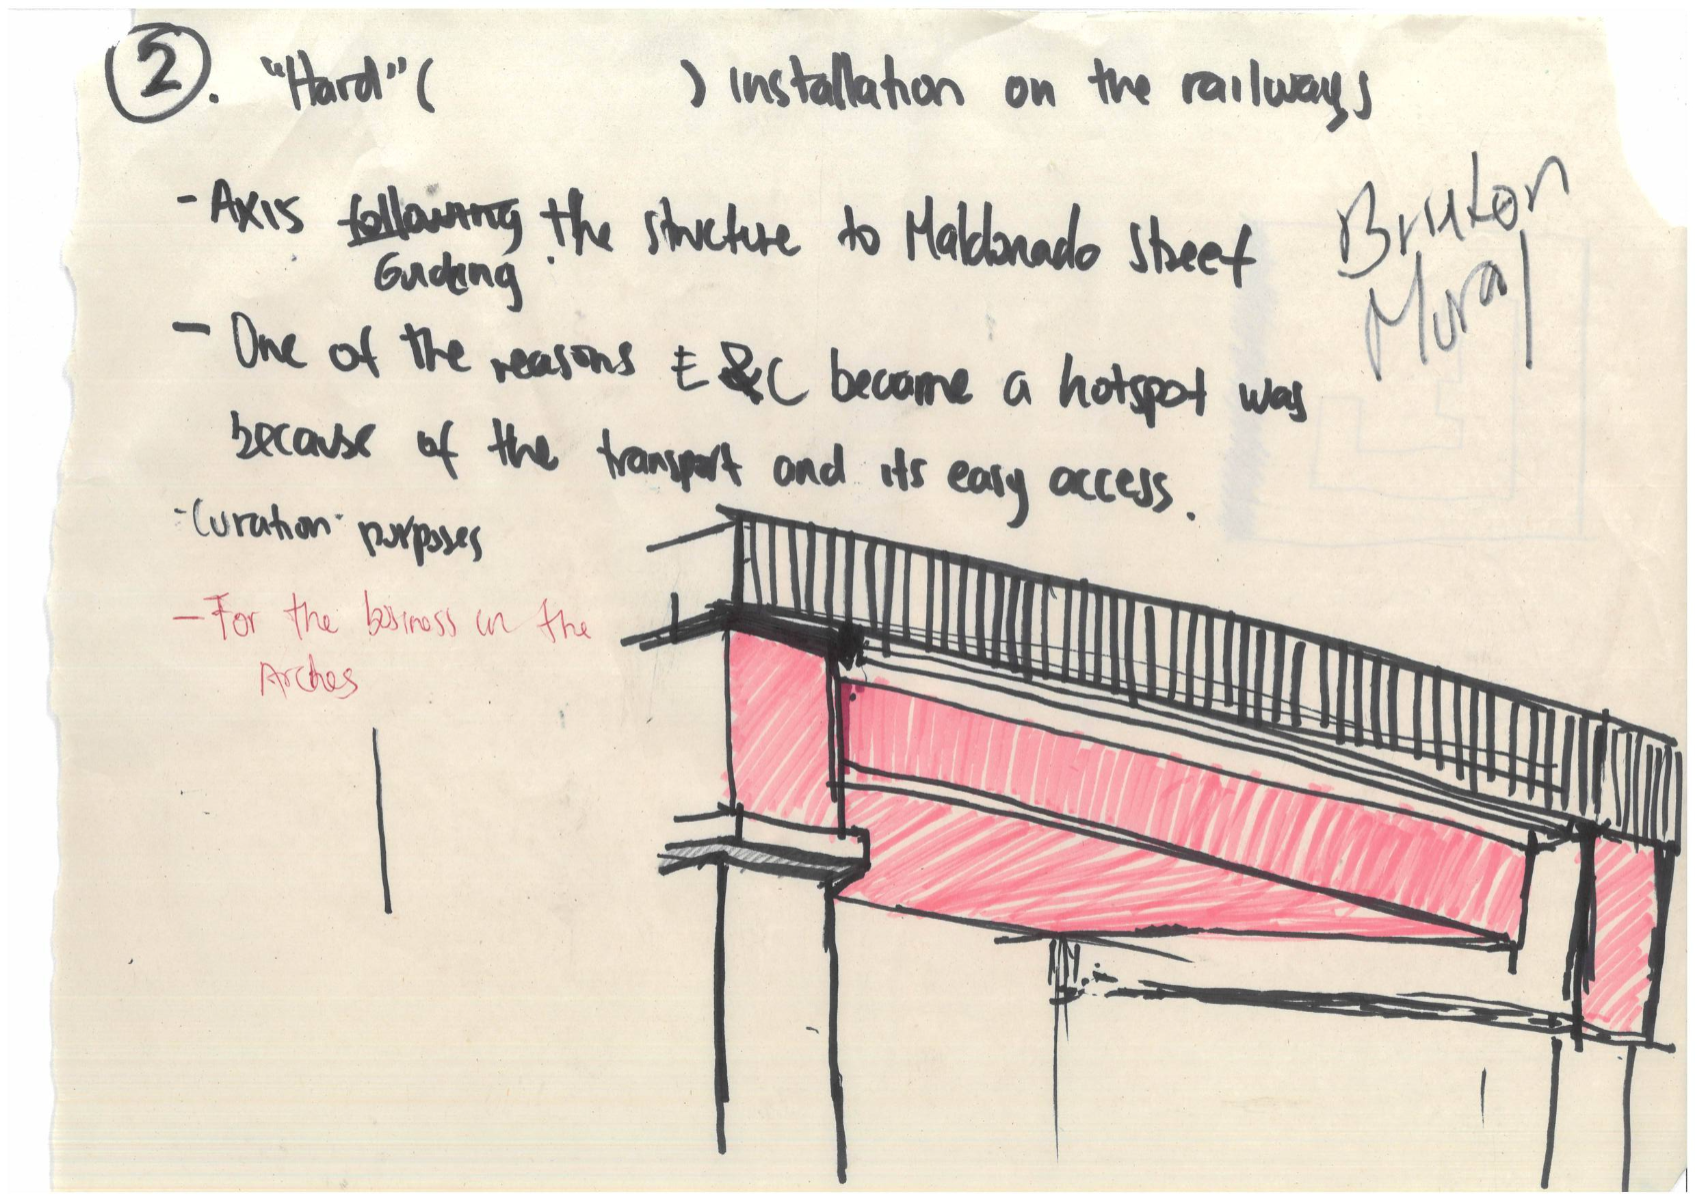 2. "Hard" ( ) installation on the railways
- Axis following the structure to Maldonado street
Guiding
Brixton
Mural
- One of the reasons E&C became a hotspot was
because of the transport and its easy access.
- Curation purposes
- For the business in the
Arches